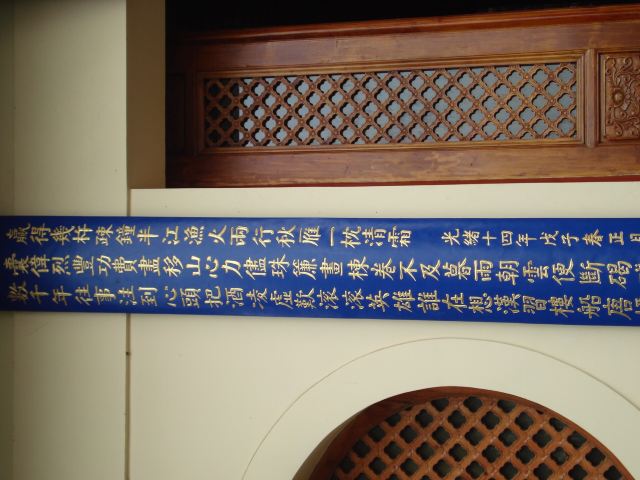 數千年往事注到心頭把酒凌虛歎滾滾英雄誰在想漢習樓船唐
囊偉烈豐功費盡移山心力儘珠簾畫棟卷不及暮雨朝雲便斷碣
贏得幾杵疎鐘半江漁火兩行秋雁一枕清霜 光緒十四年戊子春正月